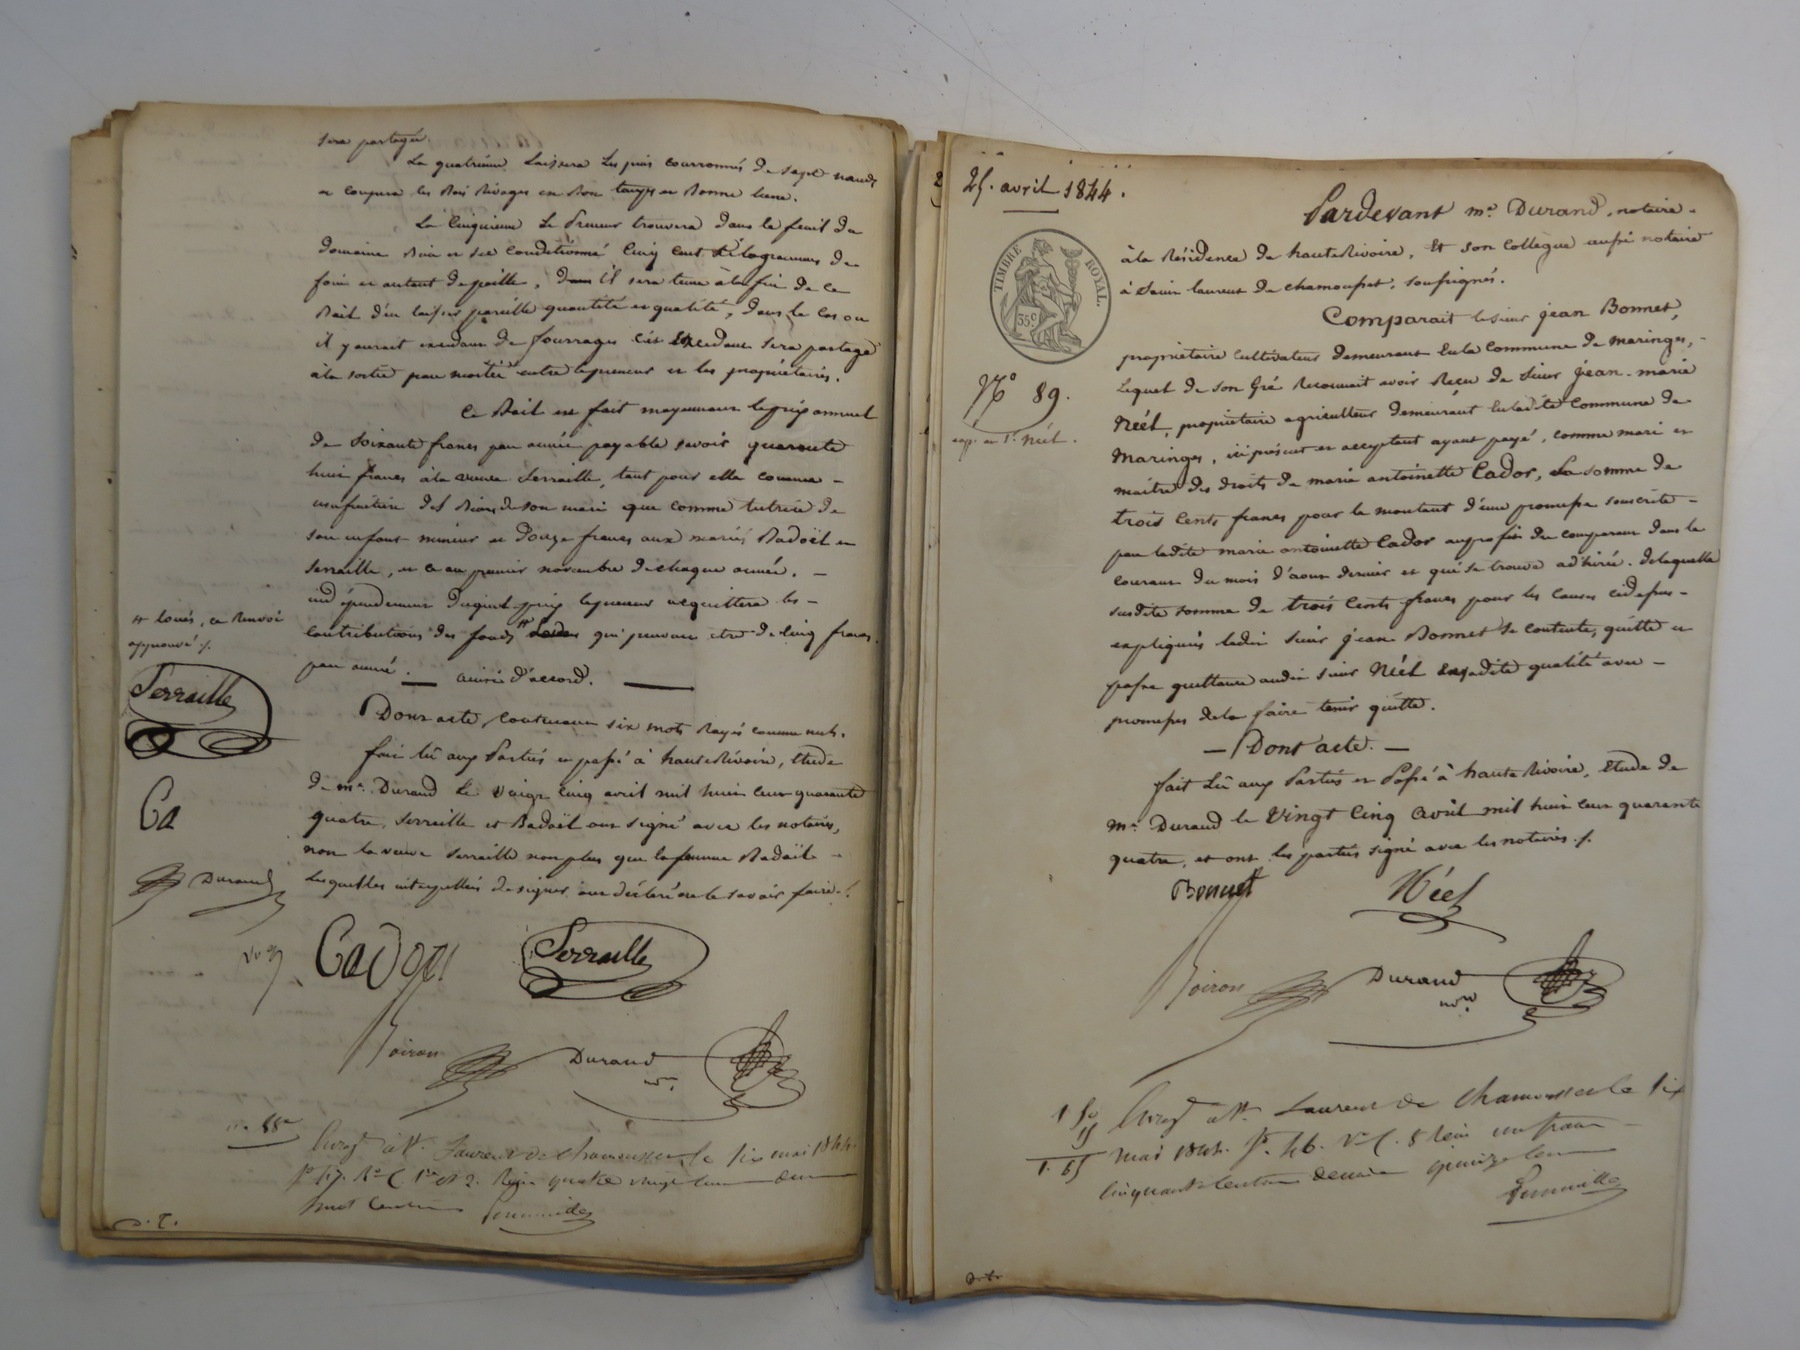 sera partagée.
La quatrieme Laissera Les pins couronnés de sept nœuds
et coupera les Bois Rivages en Bon temps et Bonne lune.
La Cinquieme Le Preneur trouvera dans le fenil du
domaine Bien et sec conditionné Cinq cent Kilogrammes de
foin et autant de paille, dont il sera tenu à la fin de ce
Bail d'en laisser pareille quantité et qualité, dans le cas ou
il y aurait excedant de fourrages cet Excedant sera partagé
à la sortie par moitié entre le preneur et les propriétaires.
Ce Bail est fait moyennant le prix annuel
de Soixante francs par année payable savoir quarante
huit francs à la veuve Serraille, tant pour elle comme
usufruitiere des Biens de son mari que comme tutrice de
son enfant mineur et Douze francs aux mariés Badoël et
Serraille, et ce au premier novembre de chaque année.
indépendamment du quel prix le preneur acquittera les
contributions des fonds # qui peuvent etre de Cinq francs
par année. ainsi d'accord.
# loués, ce Renvoi
approuvé ./.
Serraille
Ca
Durand
Dont acte, contenant six mots Rayés comme nuls.
fait lû aux Parties et passé à haute Rivoire, Etude
de me. Durand Le Vingt Cinq avril mil huit cent quarante
quatre, Serraille et Badoël ont signé avec les notaires,
non la veuve Serraille non plus que la femme Badoël
Lesquelles interpellées de signer ont déclaré ne le savoir faire ./.
Serraille
Boiron
Durand
nre.
no. 88
Enregé à St. Laurent de Chamousset le six mai 1844
d. T.
25. avril 1844.
TIMBRE ROYAL.
35c
No 89.
exp. au Sr. Néel.
Pardevant me. Durand, notaire
à la Résidence de haute Rivoire, Et son Collègue aussi notaire
à Saint laurent de chamousset, soussignés.
Comparait le sieur jean Bonnet,
propriétaire Cultivateur demeurant En la Commune de Maringes,
Lequel de son Gré Reconnait avoir Reçu de Sieur jean-marie
Néel, propriétaire agriculteur demeurant En ladite Commune de
Maringes, ici présent et acceptant ayant payé, comme mari et
maitre des droits de marie antoinette Cador, La somme de
trois Cents francs pour le montant d'une promesse souscrite
par ladite marie antoinette Cador au profit du comparant dans le
courant du mois d'aout dernier et qui se trouve adhirée. de laquelle
susdite somme de trois Cents francs pour les Causes cidessus
expliquées ledit Sieur jean Bonnet se contente, quitte et
passe quittance audit sieur Néel en sadite qualité avec
promesses de le faire tenir quitte.
— Dont acte. —
fait Lû aux Parties et Passé à haute Rivoire, Etude de
me. Durand le Vingt Cinq Avril mil huit cent quarante
quatre, et ont les parties signé avec les notaires ./.
Bonnet
Néel
Boiron
Durand
nre.
1 50
15
1. 65
Enregé à St. Laurent de Chamousset le six
mai 1844. fo. 46. Vo. C. 5 Reçu un franc
Cinquante Centimes decime quinze Cent